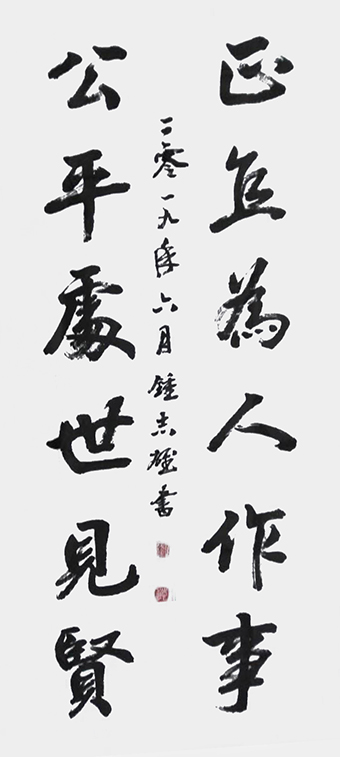 正直為人作事
公平處世見賢
二零一九年六月鍾志雄書